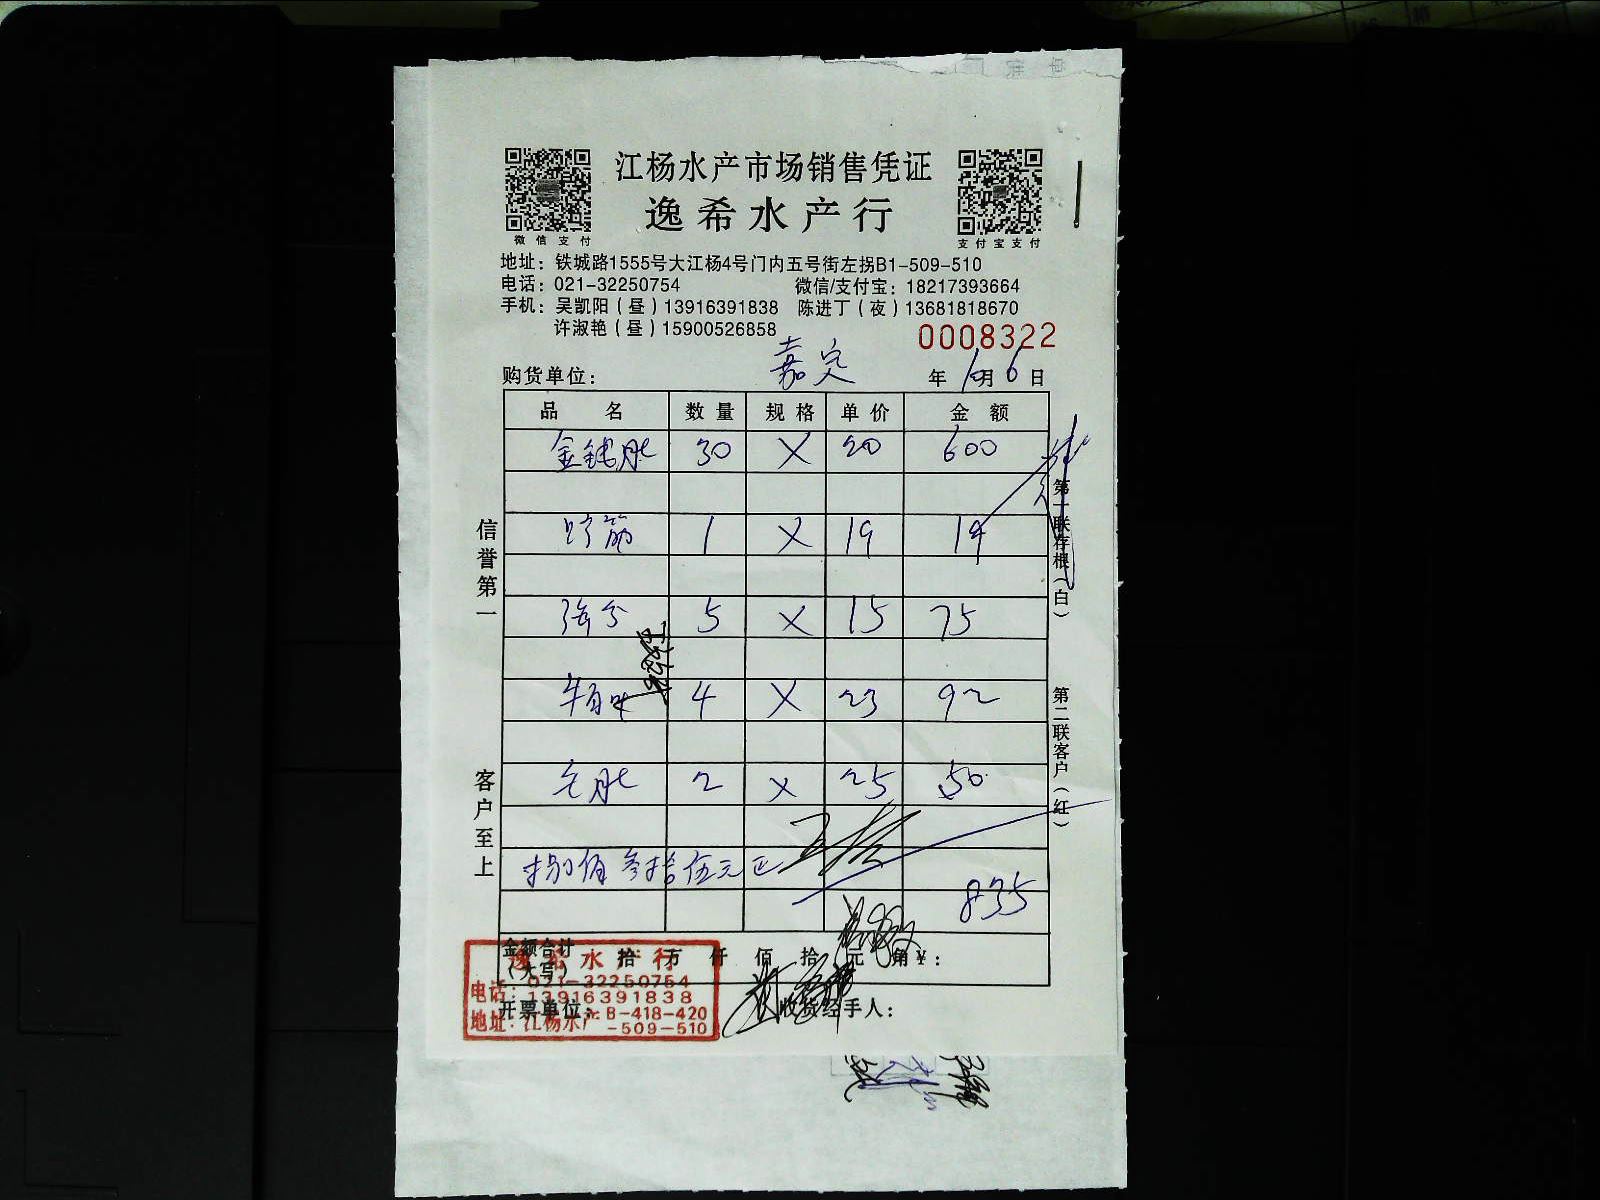 江杨水产市场销售凭证
逸希水产行
微信支付
支付宝支付
地址：铁城路1555号大江杨4号门内五号街左拐B1-509-510
电话：021-32250754 微信/支付宝：18217393664
手机：吴凯阳（昼）13916391838 陈进丁（夜）13681818670
许淑艳（昼）15900526858
0008322
购货单位： 嘉定 年 10月 6日
品名 数量 规格 单价 金额
金钱肚 30 X 20 600
筋 1 X 19 19
5 X 15 75
牛百叶 4 X 23 92
毛肚 2 X 25 50
捌佰叁拾伍元正
835
金额合计（大写） 拾 万 仟 佰 拾 元 角 ¥：
开票单位： 收货经手人：
信誉第一
客户至上
第一联存根（白）
第二联客户（红）
逸希水产行
电话：021-32250754
13916391838
地址：江杨水产B-418-420
-509-510